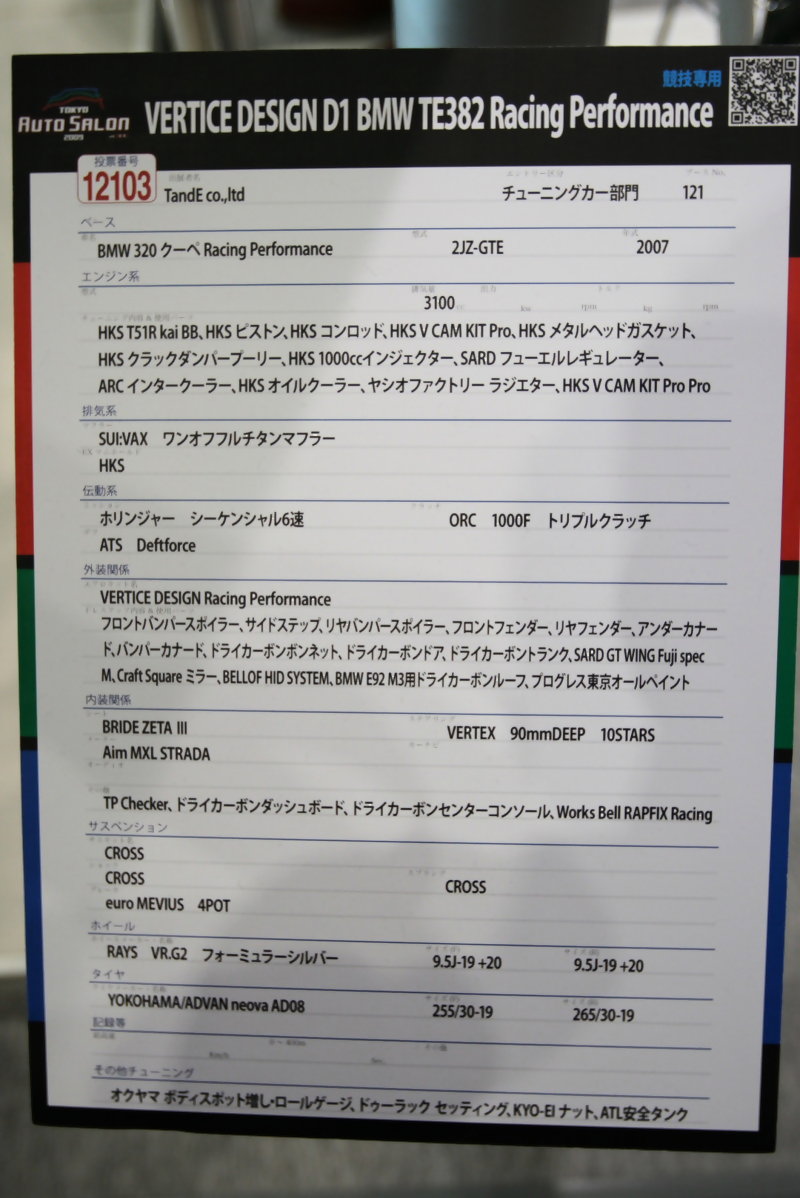 競技専用
TOKYO
AUTO SALON
2009
VERTICE DESIGN D1 BMW TE382 Racing Performance
投票番号
12103
出展者名
エントリー区分
ブース No.
TandE co.,ltd
チューニングカー部門
121
ベース
車名
型式
年式
BMW 320 クーペ Racing Performance
2JZ-GTE
2007
エンジン系
型式
排気量
出力
トルク
3100
cc
kw
rpm
kg
rpm
チューニング内容 & 使用パーツ
HKS T51R kai BB、HKS ピストン、HKS コンロッド、HKS V CAM KIT Pro、HKS メタルヘッドガスケット、
HKS クラックダンパープーリー、HKS 1000ccインジェクター、SARD フューエルレギュレーター、
ARC インタークーラー、HKS オイルクーラー、ヤシオファクトリー ラジエター、HKS V CAM KIT Pro Pro
排気系
マフラー
SUI:VAX ワンオフフルチタンマフラー
EX マニホールド
HKS
伝動系
クラッチ
ホリンジャー シーケンシャル6速
ORC 1000F トリプルクラッチ
ATS Deftforce
外装関係
エアロキット名
VERTICE DESIGN Racing Performance
ドレスアップ内容 & 使用パーツ
フロントバンパースポイラー、サイドステップ、リヤバンパースポイラー、フロントフェンダー、リヤフェンダー、アンダーカナー
ド、バンパーカナード、ドライカーボンボンネット、ドライカーボンドア、ドライカーボントランク、SARD GT WING Fuji spec
M、Craft Square ミラー、BELLOF HID SYSTEM、BMW E92 M3用ドライカーボンルーフ、プログレス東京オールペイント
内装関係
シート
ステアリング
BRIDE ZETA III
VERTEX 90mmDEEP 10STARS
メーター
カーナビ
Aim MXL STRADA
オーディオ
その他
TP Checker、ドライカーボンダッシュボード、ドライカーボンセンターコンソール、Works Bell RAPFIX Racing
サスペンション
CROSS
スプリング
CROSS
CROSS
ブレーキ
euro MEVIUS 4POT
ホイール
ホイールメーカー・名称
サイズ(F)
サイズ(R)
RAYS VR.G2 フォーミュラーシルバー
9.5J-19 +20
9.5J-19 +20
タイヤ
タイヤメーカー・名称
サイズ(F)
サイズ(R)
YOKOHAMA/ADVAN neova AD08
255/30-19
265/30-19
記録等
最高速
0〜400m
その他
Km/h
Sec.
その他チューニング
オクヤマ ボディスポット増し・ロールゲージ、ドゥーラック セッティング、KYO-EI ナット、ATL安全タンク